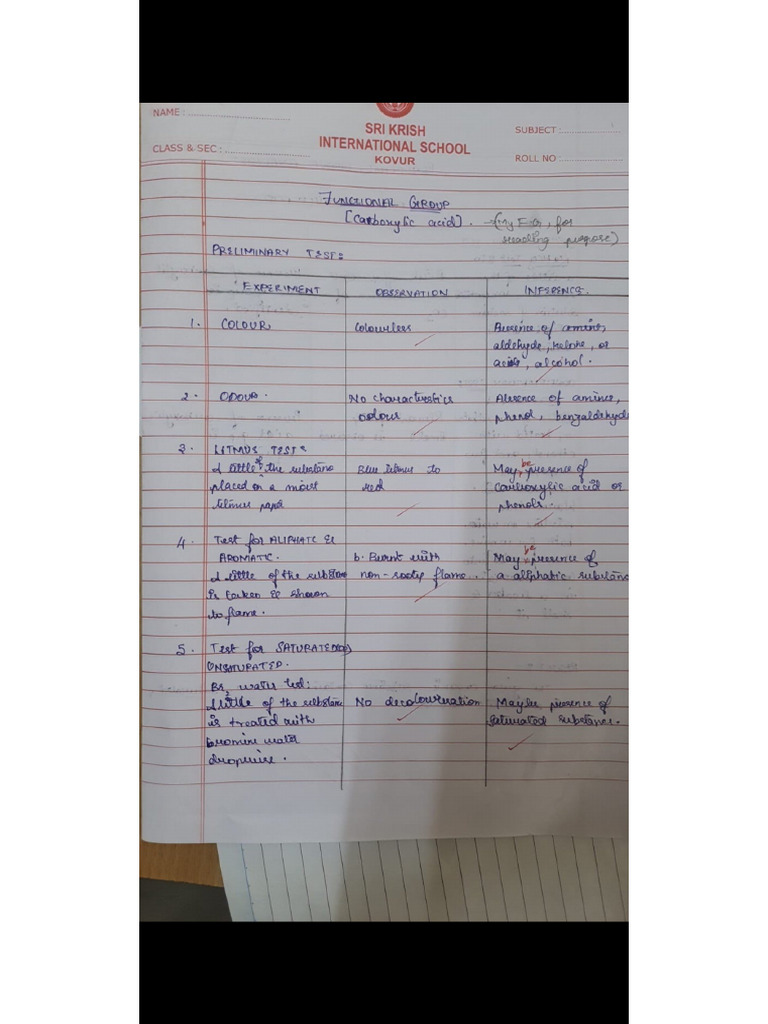 NAME :
SRI KRISH
SUBJECT :
CLASS & SEC :
INTERNATIONAL SCHOOL
KOVUR
ROLL NO :
FUNCTIONAL GROUP
[Carboxylic acid]. (my F.G, for
reading purpose)
PRELIMINARY TEST:
EXPERIMENT OBSERVATION INFERENCE.
1. COLOUR Colourless Absence of amine,
aldehyde, ketone, or
acid, alcohol.
2. ODOUR. No characteristics Absence of amines,
odour phenol, benzaldehyde
3. LITMUS TEST:
A little of the substance Blue litmus to May be presence of
placed on a moist red carboxylic acid or
litmus paper phenols.
4. Test for ALIPHATIC &
AROMATIC. b. Burnt with May be presence of
A little of the substance non-sooty flame. a aliphatic substance
is taken & shown
to flame.
5. Test for SATURATED (or)
UNSATURATED.
Br2 water test:
A little of the substance No decolouration Maybe presence of
is treated with saturated substance.
bromine water
dropwise.